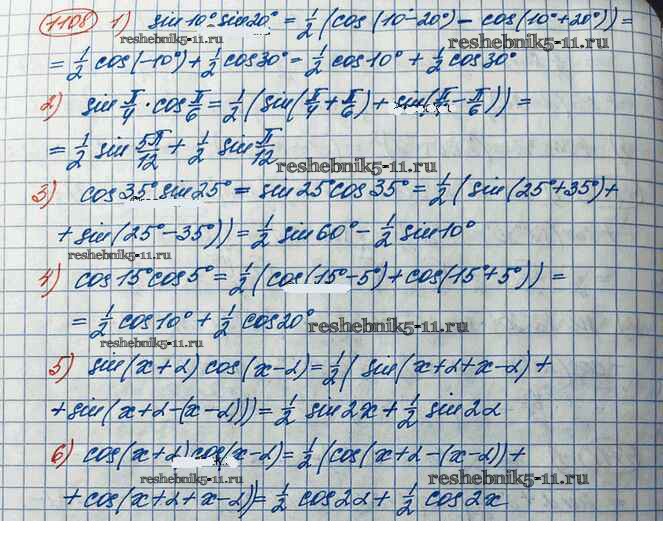 1108 1) sin10° sin20° = 1/2 (cos(10°-20°) - cos(10°+20°)) =
= 1/2 cos(-10°) + 1/2 cos30° = 1/2 cos10° + 1/2 cos30°
2) sin π/4 · cos π/6 = 1/2 (sin(π/4 + π/6) + sin(π/4 - π/6)) =
= 1/2 sin 5π/12 + 1/2 sin π/12
reshebnik5-11.ru
3) cos35° sin25° = sin25° cos35° = 1/2 (sin(25°+35°) +
+ sin(25°-35°)) = 1/2 sin60° - 1/2 sin10°
reshebnik5-11.ru
4) cos15° cos5° = 1/2 (cos(15°-5°) + cos(15°+5°)) =
= 1/2 cos10° + 1/2 cos20° reshebnik5-11.ru
reshebnik5-11.ru
5) sin(x+α) cos(x-α) = 1/2 (sin(x+α+x-α) +
+ sin(x+α-(x-α))) = 1/2 sin2x + 1/2 sin2α
6) cos(x+α) cos(x-α) = 1/2 (cos(x+α-(x-α)) +
reshebnik5-11.ru
+ cos(x+α+x-α)) = 1/2 cos2α + 1/2 cos2x
reshebnik5-11.ru